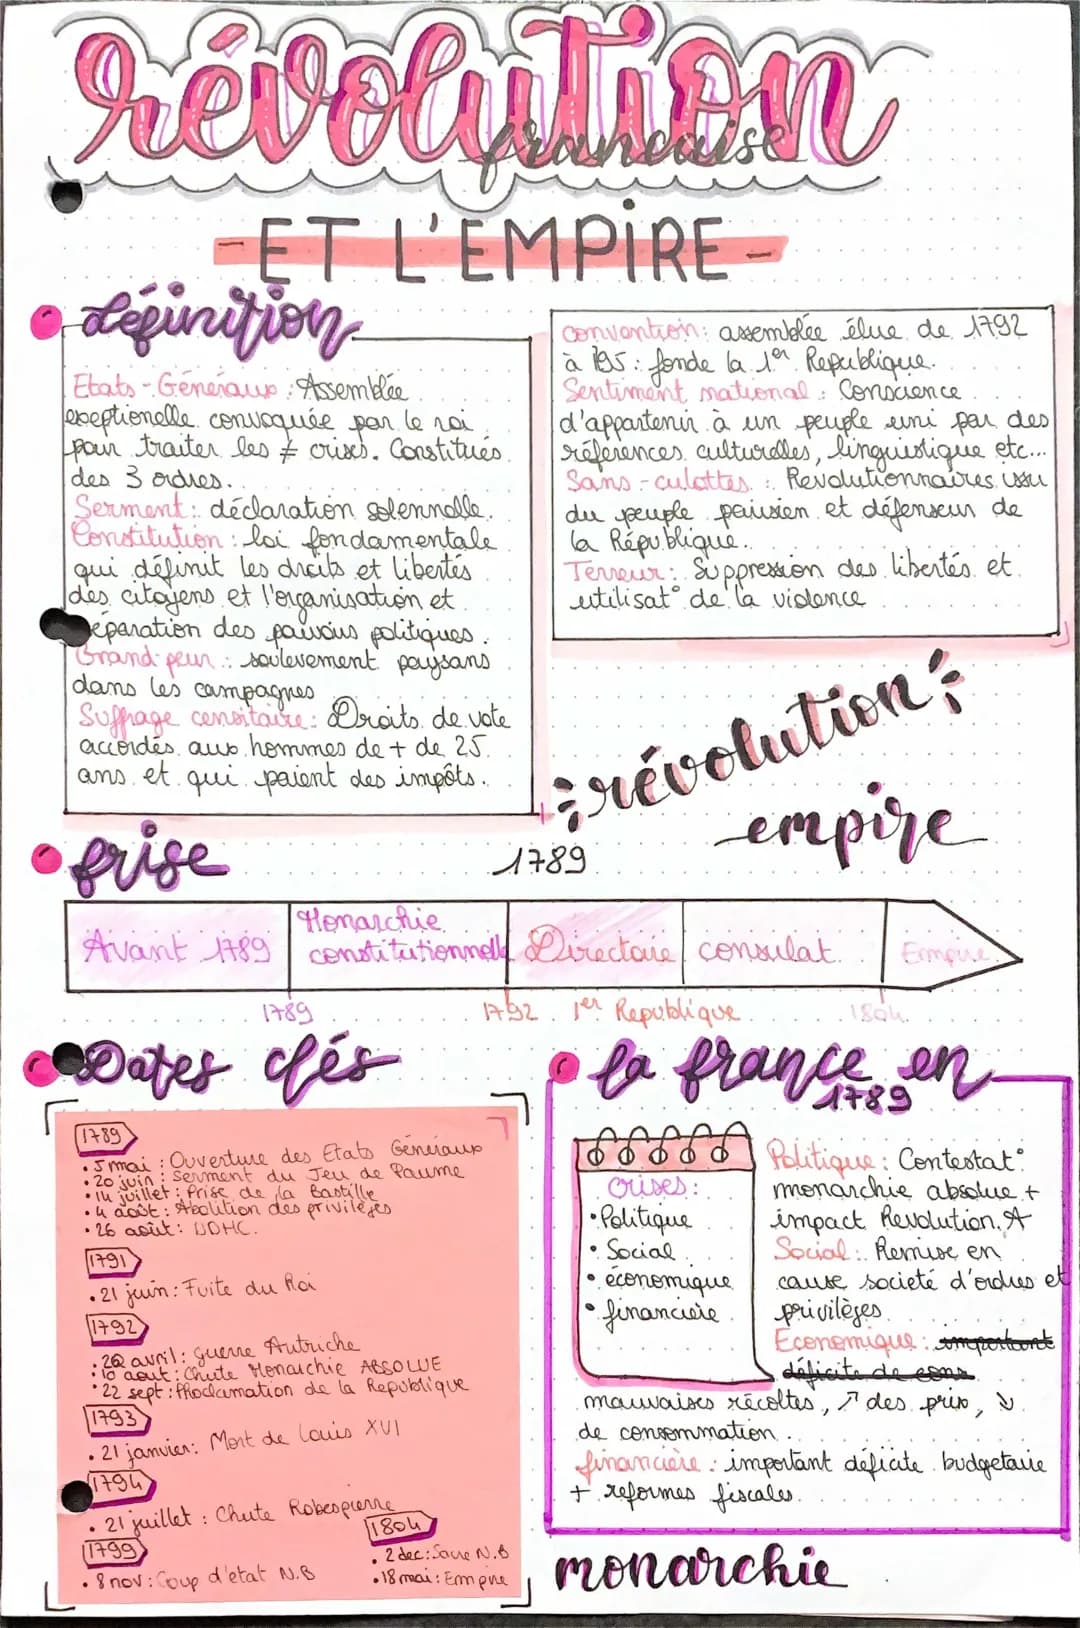 révolution
française
- ET L'EMPIRE -
définition
Etats-Généraux : Assemblée
exeptionelle convoquée par le roi
pour traiter les ≠ crises. Constitués
des 3 ordres.
Serment : déclaration solennelle.
Constitution : loi fondamentale
qui définit les droits et libertés
des citoyens et l'organisation et
séparation des pouvoirs politiques.
Grand peur : soulevement paysans
dans les campagnes
Suffrage censitaire : Droits de vote
accordés aux hommes de + de 25
ans et qui paient des impôts.
convention : assemblée élue de 1792
à 195 : fonde la 1er Republique.
Sentiment national : Conscience
d'appartenir à un peuple uni par des
réferences culturelles, linguistique etc...
Sans-culottes : Revolutionnaires issu
du peuple parisien et défenseur de
la République.
Terreur : Suppression des libertés et
utilisat° de la violence
révolution
empire
frise
1789
Avant 1789
Monarchie
constitutionnelle
Directoire
consulat
Empire
1789
1792
1er Republique
1804
Dates clés
1789
• 5 mai : Ouverture des Etats Généraux
• 20 juin : Serment du Jeu de Paume
• 14 juillet : Prise de la Bastille
• 4 août : Abolition des privilèges
• 26 août : DDHC.
1791
• 21 juin : Fuite du Roi
1792
• 20 avril : guerre Autriche
• 10 aout : Chute Monarchie ABSOLUE
• 22 sept : PRoclamation de la Republique
1793
• 21 janvier : Mort de Louis XVI
1794
• 21 juillet : Chute Robespierre
1799
• 8 nov : Coup d'etat N.B
1804
• 2 dec : Sacre N.B
• 18 mai : Empire
la france en
1789
crises :
• Politique
• Social
• économique
• financière
Politique : Contestat°
monarchie absolue +
impact Revolution. A
Social : Remise en
cause societé d'ordres et
privilèges
Economique : important
déficite de cons
mauvaises récoltes, ↗ des prix, ↘
de consommation.
financière : important déficite budgetaire
+ reformes fiscales.
monarchie